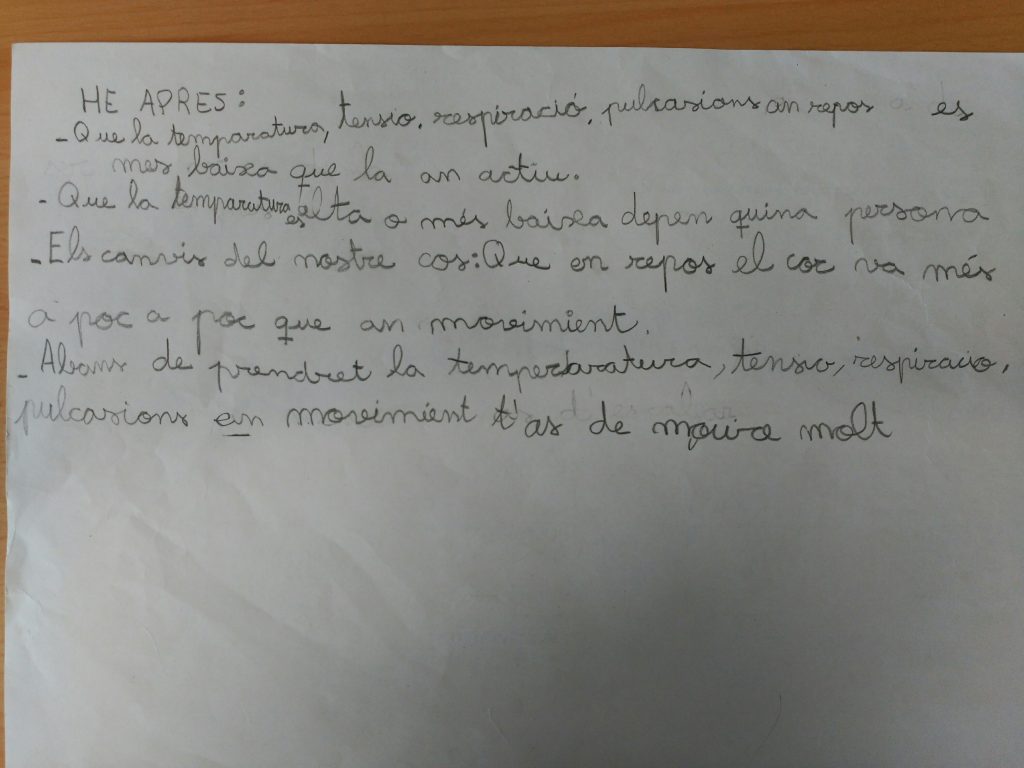 HE APRES:
- Que la temparatura, tensio, respiració, pulcasions an repos es
mes baixa que la an actiu.
- Que la temparatura es alta o més baixa depen quina persona
- Els canvis del nostre cos: Que en repos el cor va més
a poc a poc que an movimient.
- Abans de prendret la temperaratura, tensio, respiracio,
pulcasions en movimient t'as de moure molt